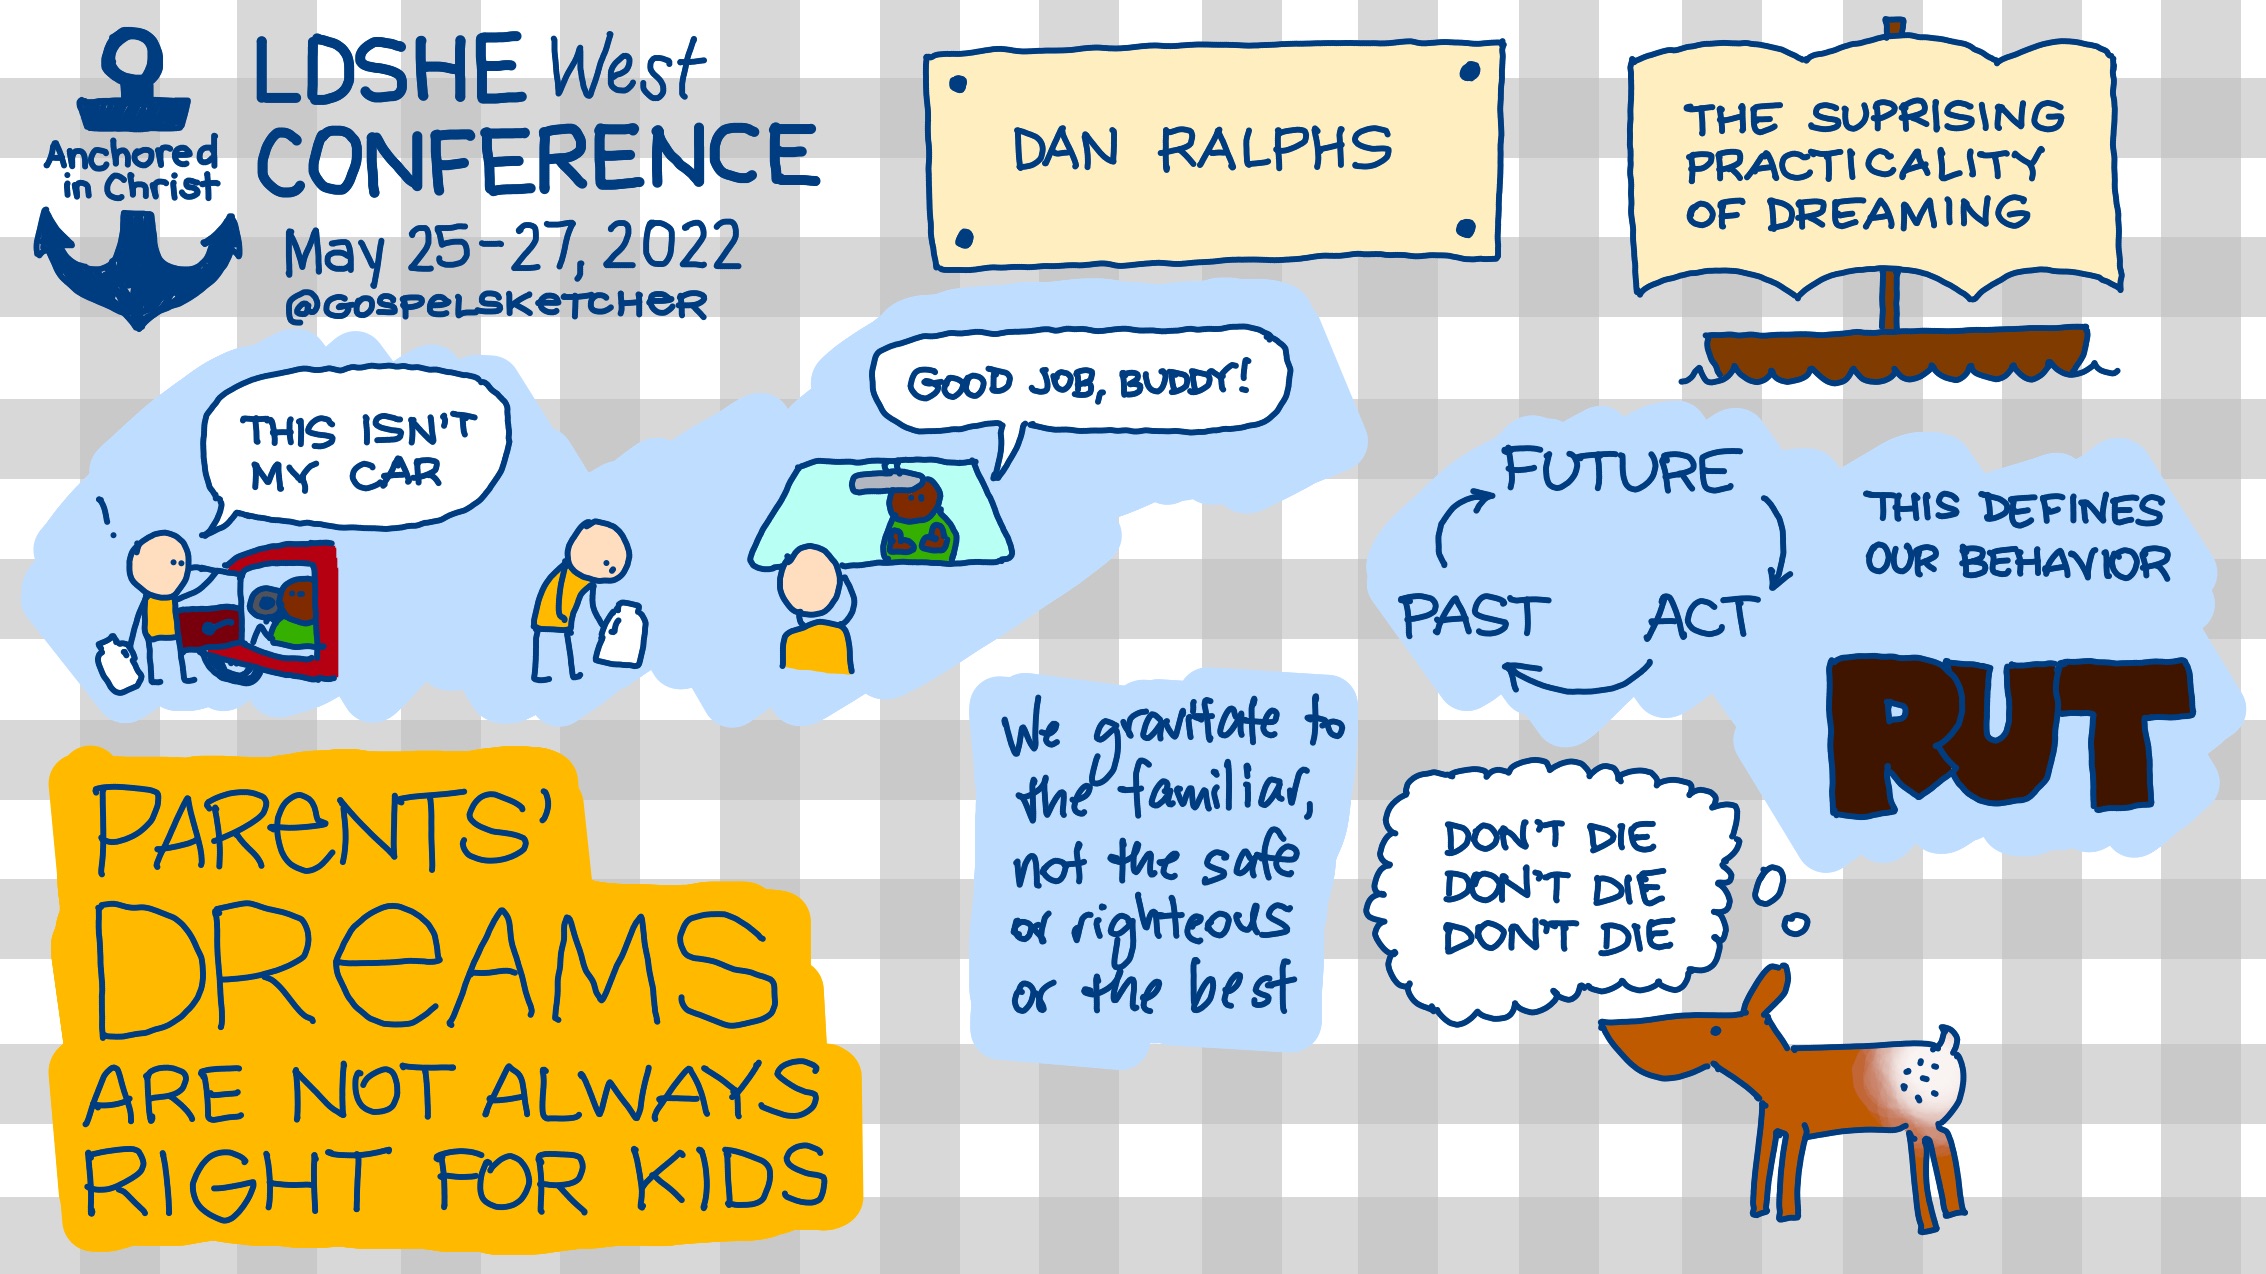 LDSHE West
CONFERENCE
Anchored
in Christ
May 25-27, 2022
@GOSPELSKETCHER
DAN RALPHS
THE SUPRISING
PRACTICALITY
OF DREAMING
THIS ISN'T
MY CAR
!
GOOD JOB, BUDDY!
FUTURE
PAST
ACT
THIS DEFINES
OUR BEHAVIOR
RUT
PARENTS'
DREAMS
ARE NOT ALWAYS
RIGHT FOR KIDS
We gravitate to
the familiar,
not the safe
or righteous
or the best
DON'T DIE
DON'T DIE
DON'T DIE